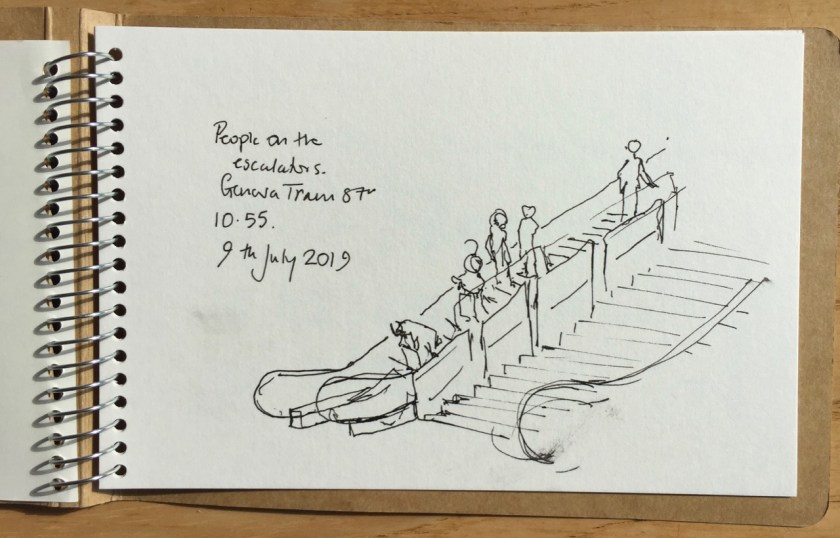 People on the
escalators.
Genova Train Stn
10.55.
9th July 2019